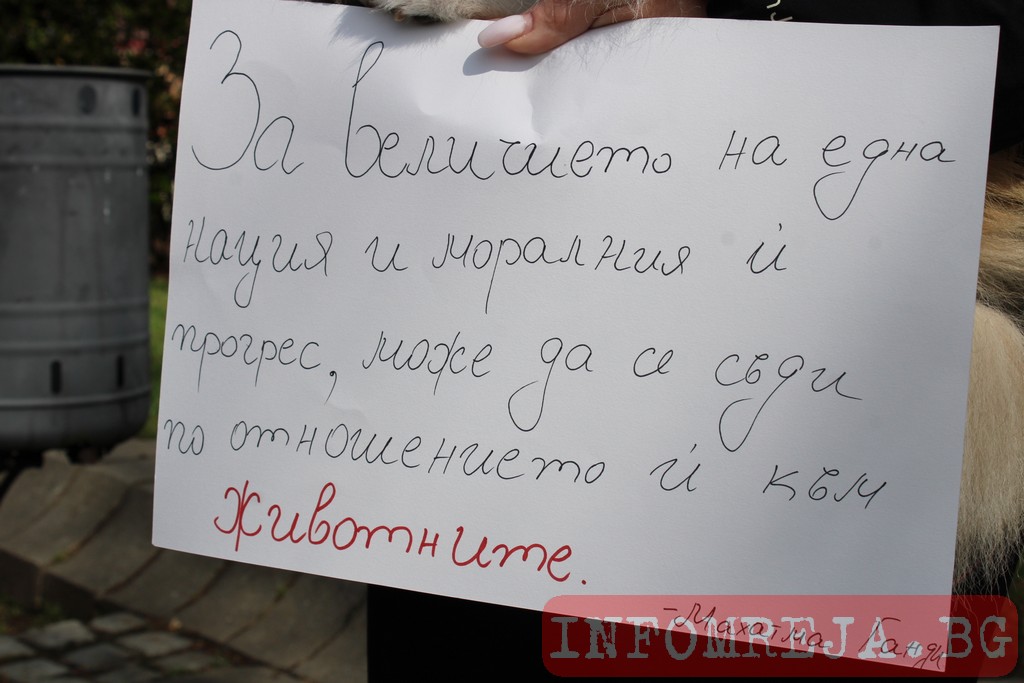 За величието на една
нация и моралния ѝ
прогрес, може да се съди
по отношението ѝ към
животните.
-Махатма Ганди
INFOMREJA.BG